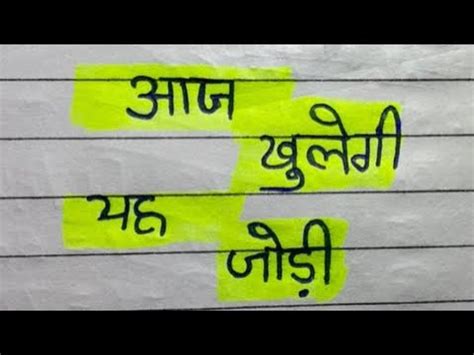 आज
खुलेगी
यह
जोड़ी